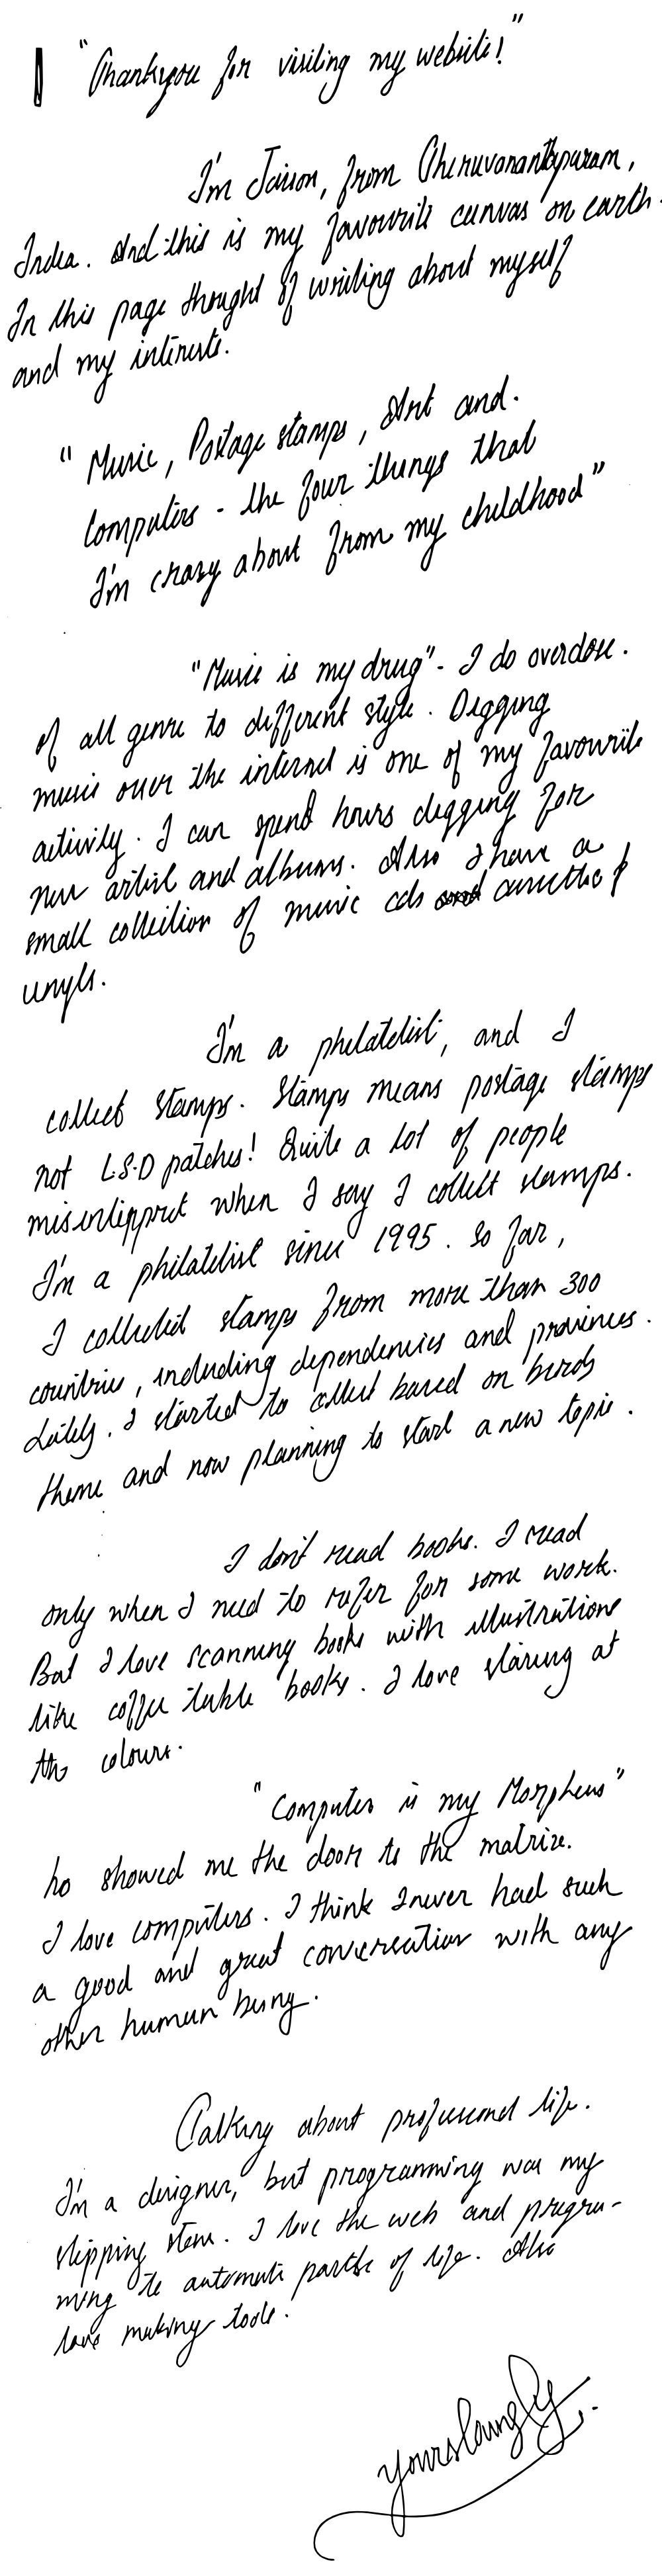 "Thankyou for visiting my website!"
I'm Jaison, from Thiruvananthapuram,
India. And this is my favourite canvas on earth.
In this page thought of writing about myself
and my interests.
"Music, Postage stamps, Art and.
Computers - the four things that
I'm crazy about from my childhood"
"Music is my drug" - I do overdose.
of all genre to different style. Digging
music over the internet is one of my favourite
activity. I can spend hours digging for
new artist and albums. Also I have a
small collection of music cds and
vinyls.
I'm a philatelist, and I
collect stamps. Stamps means postage stamps
not L.S.D patches! Quite a lot of people
misinterpret when I say I collect stamps.
I'm a philatelist since 1995. So far,
I collected stamps from more than 300
countries, including dependencies and provinces.
Lately, I started to collect based on birds
theme and now planning to start a new topic.
I don't read books. I read
only when I need to refer for some work.
But I love scanning books with illustrations
like coffee table books. I love staring at
the colours.
"Computer is my Morpheus"
ho showed me the door to the matrix.
I love computers. I think I never had such
a good and great conversation with any
other human being.
Talking about professional life.
I'm a designer, but programming was my
stepping stone. I love the web and progra-
ming to automate parts of life. Also
love making tools.
yourslovingly